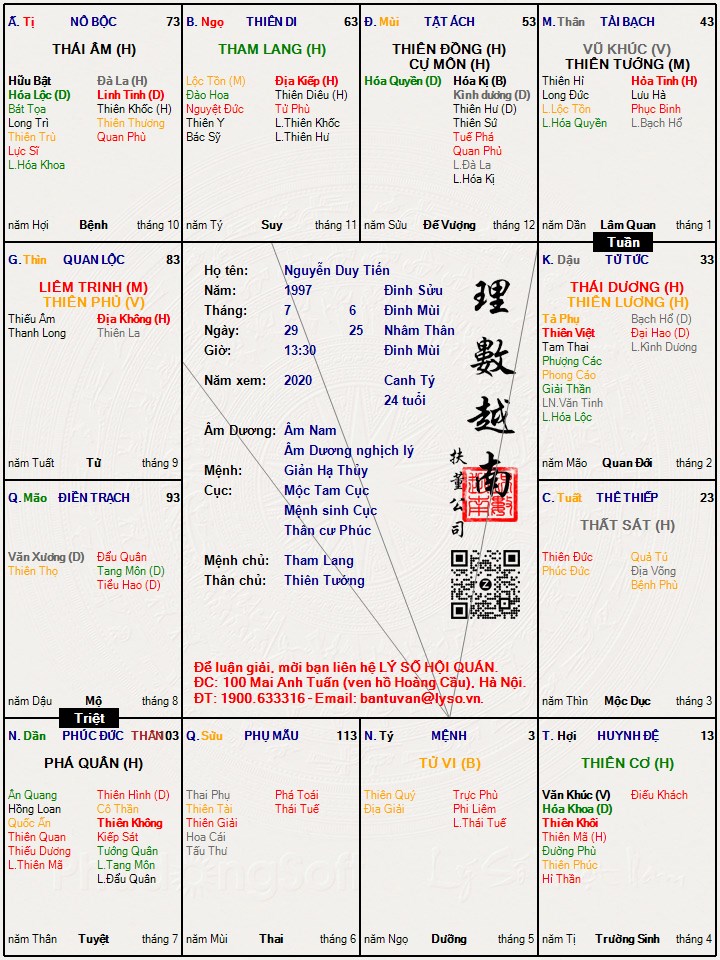 Ấ. Tị NÔ BỘC 73
THÁI ÂM (H)
Hữu Bật Đà La (H)
Hóa Lộc (D) Linh Tinh (D)
Bát Tọa Thiên Khốc (H)
Long Trì Thiên Thương
Thiên Trù Quan Phù
Lực Sĩ
L.Hóa Khoa
năm Hợi Bệnh tháng 10
B. Ngọ THIÊN DI 63
THAM LANG (H)
Lộc Tồn (M) Địa Kiếp (H)
Đào Hoa Thiên Diêu (H)
Nguyệt Đức Tử Phù
Thiên Y L.Thiên Khốc
Bác Sỹ L.Thiên Hư
năm Tý Suy tháng 11
Đ. Mùi TẬT ÁCH 53
THIÊN ĐỒNG (H)
CỰ MÔN (H)
Hóa Quyền (D) Hóa Kị (B)
Kình dương (D)
Thiên Hư (D)
Thiên Sứ
Tuế Phá
Quan Phủ
L.Đà La
L.Hóa Kị
năm Sửu Đế Vượng tháng 12
M. Thân TÀI BẠCH 43
VŨ KHÚC (V)
THIÊN TƯỚNG (M)
Thiên Hỉ Hỏa Tinh (H)
Long Đức Lưu Hà
L.Lộc Tồn Phục Binh
L.Hóa Quyền L.Bạch Hổ
năm Dần Lâm Quan tháng 1
Tuần
G. Thìn QUAN LỘC 83
LIÊM TRINH (M)
THIÊN PHỦ (V)
Thiếu Âm Địa Không (H)
Thanh Long Thiên La
năm Tuất Tử tháng 9
Họ tên: Nguyễn Duy Tiến
Năm: 1997 Đinh Sửu
Tháng: 7 6 Đinh Mùi
Ngày: 29 25 Nhâm Thân
Giờ: 13:30 Đinh Mùi
Năm xem: 2020 Canh Tý
24 tuổi
Âm Dương: Âm Nam
Âm Dương nghịch lý
Mệnh: Giản Hạ Thủy
Cục: Mộc Tam Cục
Mệnh sinh Cục
Thân cư Phúc
Mệnh chủ: Tham Lang
Thân chủ: Thiên Tướng
理數越南
扶董公司
Để luận giải, mời bạn liên hệ LÝ SỐ HỘI QUÁN.
ĐC: 100 Mai Anh Tuấn (ven hồ Hoàng Cầu), Hà Nội.
ĐT: 1900.633316 - Email: bantuvan@lyso.vn.
K. Dậu TỬ TỨC 33
THÁI DƯƠNG (H)
THIÊN LƯƠNG (H)
Tả Phụ Bạch Hổ (D)
Thiên Việt Đại Hao (D)
Tam Thai L.Kình Dương
Phượng Các
Phong Cáo
Giải Thần
LN.Văn Tinh
L.Hóa Lộc
năm Mão Quan Đới tháng 2
Q. Mão ĐIỀN TRẠCH 93
Văn Xương (D) Đẩu Quân
Thiên Thọ Tang Môn (D)
Tiểu Hao (D)
năm Dậu Mộ tháng 8
Triệt
C. Tuất THÊ THIẾP 23
THẤT SÁT (H)
Thiên Đức Quả Tú
Phúc Đức Địa Võng
Bệnh Phù
năm Thìn Mộc Dục tháng 3
N. Dần PHÚC ĐỨC THÂN 103
PHÁ QUÂN (H)
Ân Quang Thiên Hình (D)
Hồng Loan Cô Thần
Quốc Ấn Thiên Không
Thiên Quan Kiếp Sát
Thiếu Dương Tướng Quân
L.Thiên Mã L.Tang Môn
L.Đẩu Quân
năm Thân Tuyệt tháng 7
Q. Sửu PHỤ MẪU 113
Thai Phụ Phá Toái
Thiên Tài Thái Tuế
Thiên Giải
Hoa Cái
Tấu Thư
năm Mùi Thai tháng 6
N. Tý MỆNH 3
TỬ VI (B)
Thiên Quý Trực Phù
Địa Giải Phi Liêm
L.Thái Tuế
năm Ngọ Dưỡng tháng 5
T. Hợi HUYNH ĐỆ 13
THIÊN CƠ (H)
Văn Khúc (V) Điếu Khách
Hóa Khoa (D)
Thiên Khôi
Thiên Mã (H)
Đường Phù
Thiên Phúc
Hỉ Thần
năm Tị Trường Sinh tháng 4